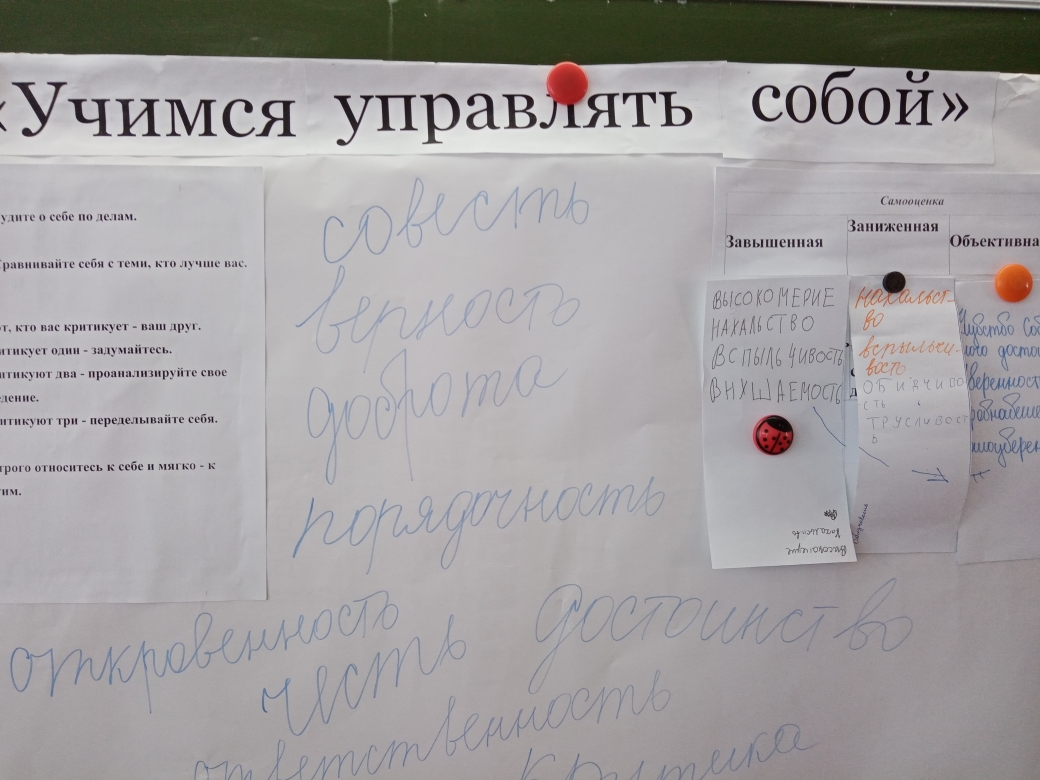 «Учимся управлять собой»
удите о себе по делам.
равнивайте себя с теми, кто лучше вас.
от, кто вас критикует - ваш друг.
итикует один - задумайтесь.
итикуют два - проанализируйте свое
едение.
итикуют три - переделывайте себя.
трого относитесь к себе и мягко - к
гим.
совесть
верность
доброта
порядочность
откровенность
честь
достоинство
ответственность
критика
Самооценка
Завышенная
Заниженная
Объективна
ВЫСОКОМЕРИЕ
НАХАЛЬСТВО
ВСПЫЛЬЧИВОСТЬ
ВНУШАЕМОСТЬ
Высокомерие
нахальст-
во
вспыльчи-
вость
ОБИДЧИВО
СТЬ
ТРУСЛИВОСТ
Ь
Чувство соб
ного досто